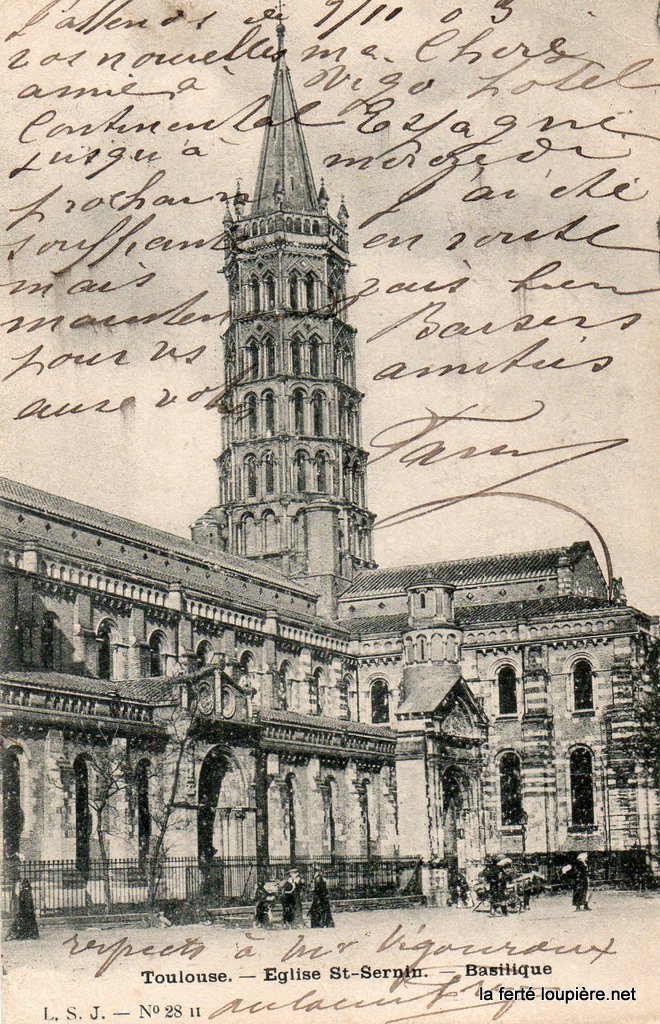 J'attends de 9/11 03
vos nouvelles ma Chère
amie à Vigo hotel
Continental Espagne
jusqu'à mercredi
prochain J'ai été
souffrante en route
mais suis bien
maintent Baisers
pour vs amitiés
respects à Mr Vigouroux
Toulouse. — Eglise St-Sernin. — Basilique
la ferté loupière.net
L. S. J. — No 28 II